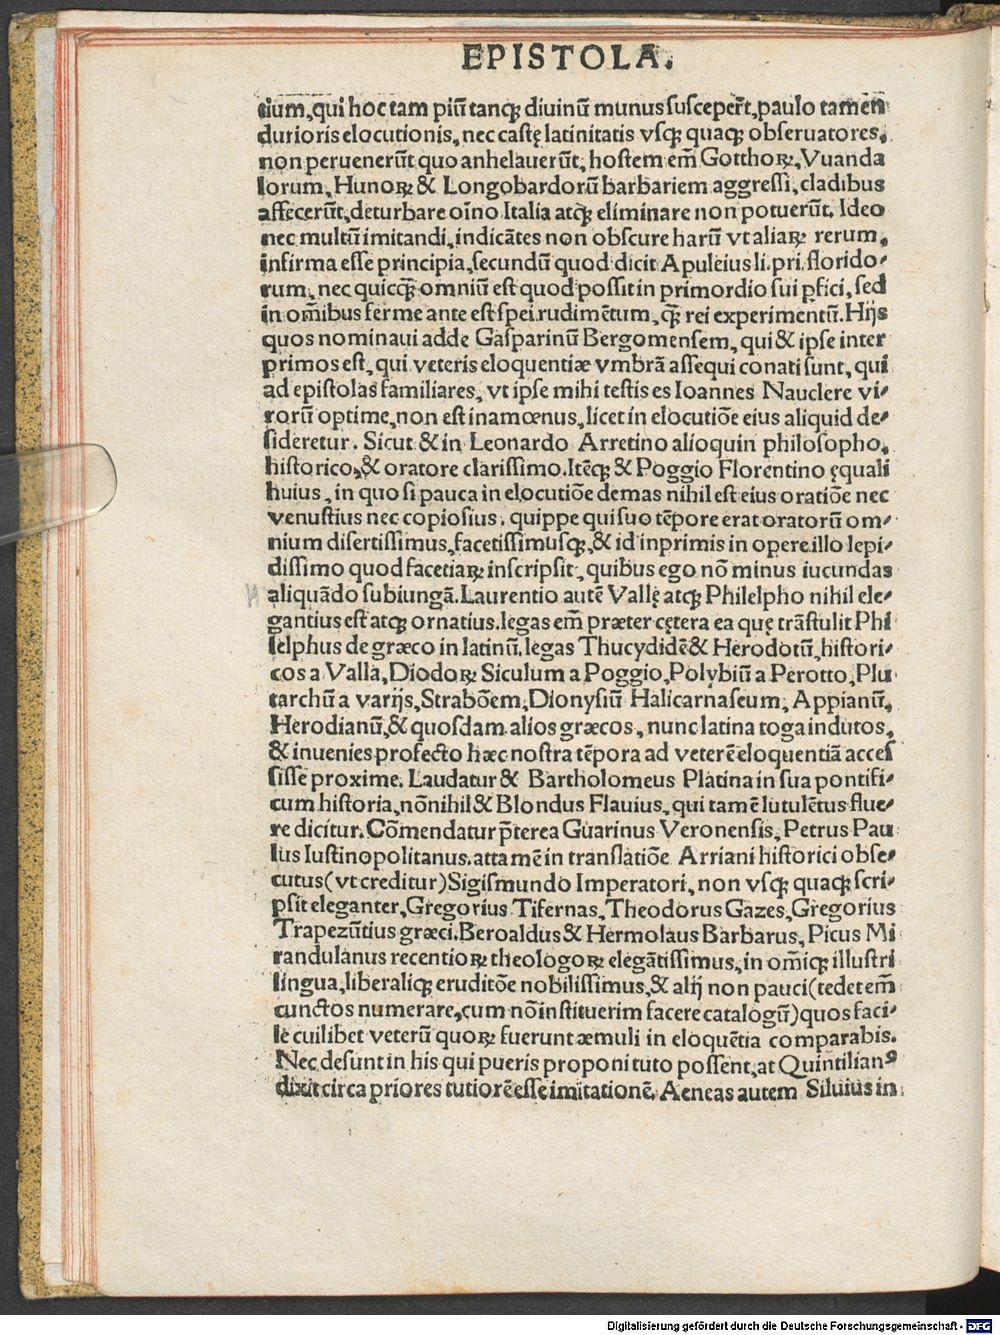 EPISTOLA.
tium, qui hoc tam piū tanqꝫ diuinū munus suscepert̄, paulo tamen
durioris elocutionis, nec castę latinitatis vsqꝫ quaqꝫ obseruatores,
non peruenerūt quo anhelauerūt, hostem em̄ Gotthoꝝ, Vuanda
lorum, Hunoꝝ & Longobardorū barbariem aggressi, cladibus
affecerūt, deturbare oīno Italia atqꝫ eliminare non potuerūt. Ideo
nec multū imitandi, indicātes non obscure harū vt aliaꝝ rerum,
infirma esse principia, secundū quod dicit Apuleius li. pri. florido⸗
rum, nec quicqꝫ omniū est quod possit in primordio sui pfici, sed
in om̄ibus ferme ante est spei rudimētum, qꝫ rei experimentū. Hijs
quos nominaui adde Gasparinū Bergomensem, qui & ipse inter
primos est, qui veteris eloquentiæ vmbrā assequi conati sunt, qui
ad epistolas familiares, vt ipse mihi testis es Ioannes Nauclere vi⸗
rorū optime, non est inamœnus, licet in elocutiōe eius aliquid de⸗
sideretur. Sicut & in Leonardo Arretino alioquin philosopho,
historico, & oratore clarissimo. Itēqꝫ & Poggio Florentino ęquali
huius, in quo si pauca in elocutiōe demas nihil est eius oratiōe nec
venustius nec copiosius, quippe qui suo tēpore erat oratorū om⸗
nium disertissimus, facetissimusqꝫ, & id inprimis in opere illo lepi⸗
dissimo quod facetiaꝝ inscripsit, quibus ego nō minus iucundas
aliquādo subiungā. Laurentio autē Vallę atqꝫ Philelpho nihil ele⸗
gantius est atqꝫ ornatius. legas em̄ præter cętera ea quę trāstulit Phi
lelphus de græco in latinū, legas Thucydidē & Herodotū, histori⸗
cos a Valla, Diodoꝝ Siculum a Poggio, Polybiū a Perotto, Plu
tarchū a varijs, Strabōem, Dionysiū Halicarnaseum, Appianū,
Herodianū, & quosdam alios græcos, nunc latina toga indutos,
& inuenies profecto hæc nostra tēpora ad veterē eloquentiā acces
sisse proxime. Laudatur & Bartholomeus Platina in sua pontifi⸗
cum historia, nōnihil & Blondus Flauius, qui tamē lutulētus flue⸗
re dicitur. Cōmendatur p̄terea Guarinus Veronensis, Petrus Pau
lus Iustinopolitanus. atta mē in translatiōe Arriani historici obse⸗
cutus (vt creditur) Sigismundo Imperatori, non vsqꝫ quaqꝫ scri⸗
psit eleganter, Gregorius Tifernas, Theodorus Gazes, Gregorius
Trapezūtius græci. Beroaldus & Hermolaus Barbarus, Picus Mi
randulanus recentioꝝ theologoꝝ elegātissimus, in om̄iqꝫ illustri
lingua, liberaliqꝫ eruditōe nobilissimus, & alij non pauci (tedet em̄
cunctos numerare, cum nō instituerim facere catalogū) quos faci⸗
le cuilibet veterū quoꝝ fuerunt æmuli in eloquētia comparabis.
Nec desunt in his qui pueris proponi tuto possent, at Quintilianꝰ
dixit circa priores tutiorē esse imitationē, Aeneas autem Siluius in
Digitalisierung gefördert durch die Deutsche Forschungsgemeinschaft - DFG